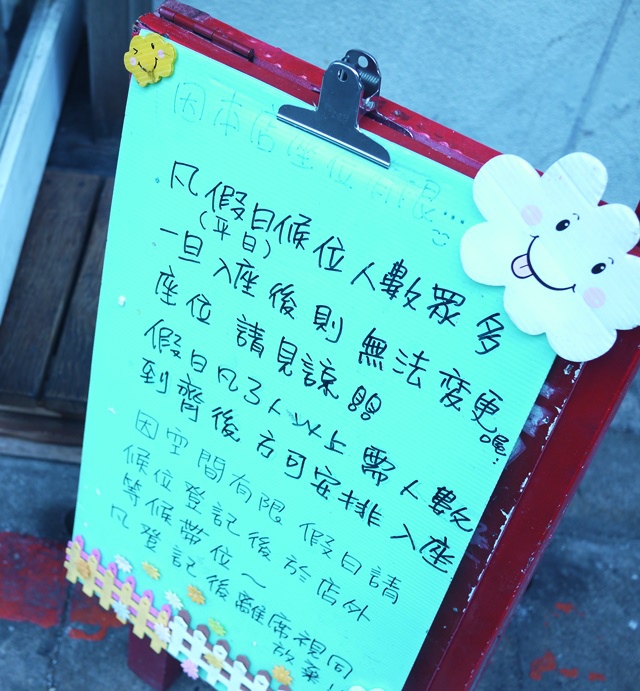 因本店座位有限...
凡假日候位人數眾多
(平日)
一旦入座後則無法變更喔!
座位 請見諒
假日凡3人以上需人數
到齊後方可安排入座
因空間有限 假日請
候位登記後於店外
等候帶位~
凡登記後離席視同
放棄!